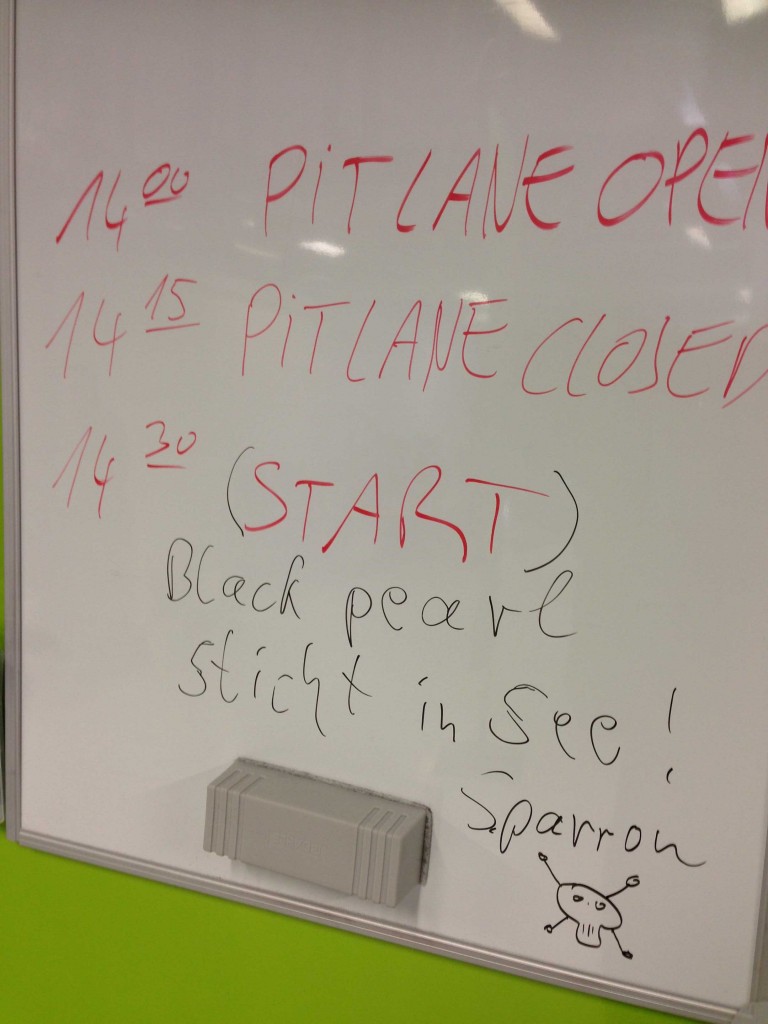 14 00 PiTLANE OPEN
14 15 PiTLANE CLOSED
14 30 (START)
Black pearl
sticht in See!
Sparrow